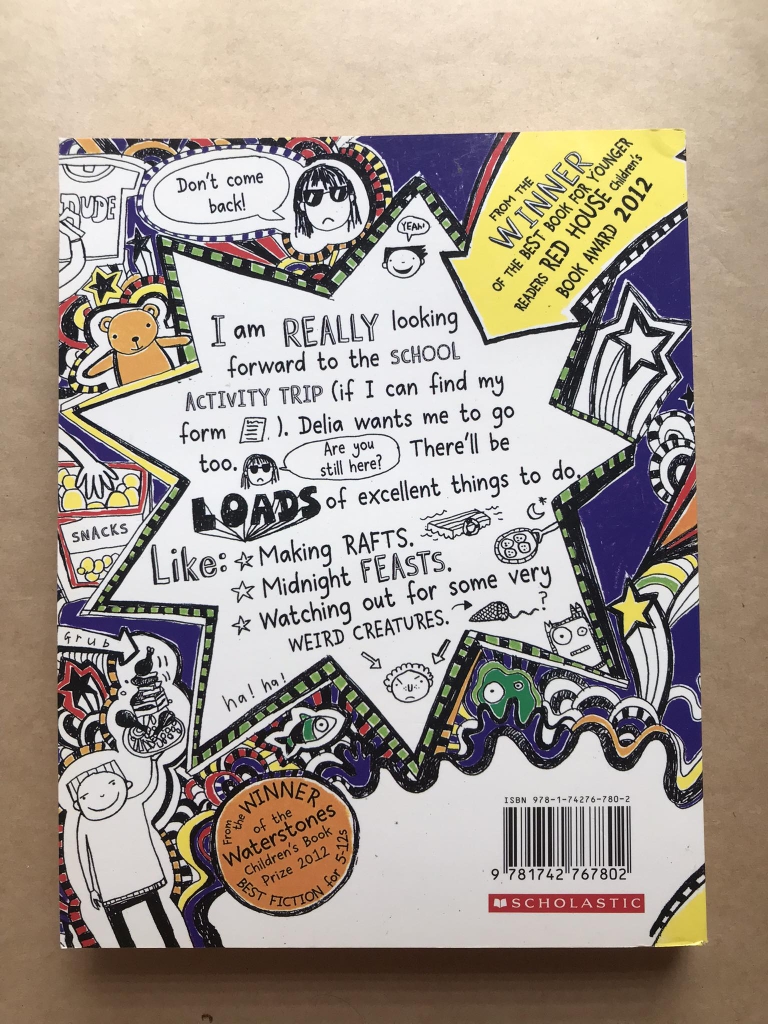 Don't come
back!
DUDE
YEAH!
FROM THE
WINNER
OF THE BEST BOOK FOR YOUNGER
READERS RED HOUSE Children's
BOOK AWARD 2012
I am REALLY looking
forward to the SCHOOL
ACTIVITY TRIP (if I can find my
form ). Delia wants me to go
too. Are you still here? There'll be
LOADS of excellent things to do.
Like: ☆ Making RAFTS.
☆ Midnight FEASTS.
☆ Watching out for some very
WEIRD CREATURES. ?
SNACKS
Grub
ha! ha!
From the WINNER
of the
Waterstones
Children's Book
Prize 2012
BEST FICTION for 5-12s
ISBN 978-1-74276-780-2
9 781742 767802
SCHOLASTIC